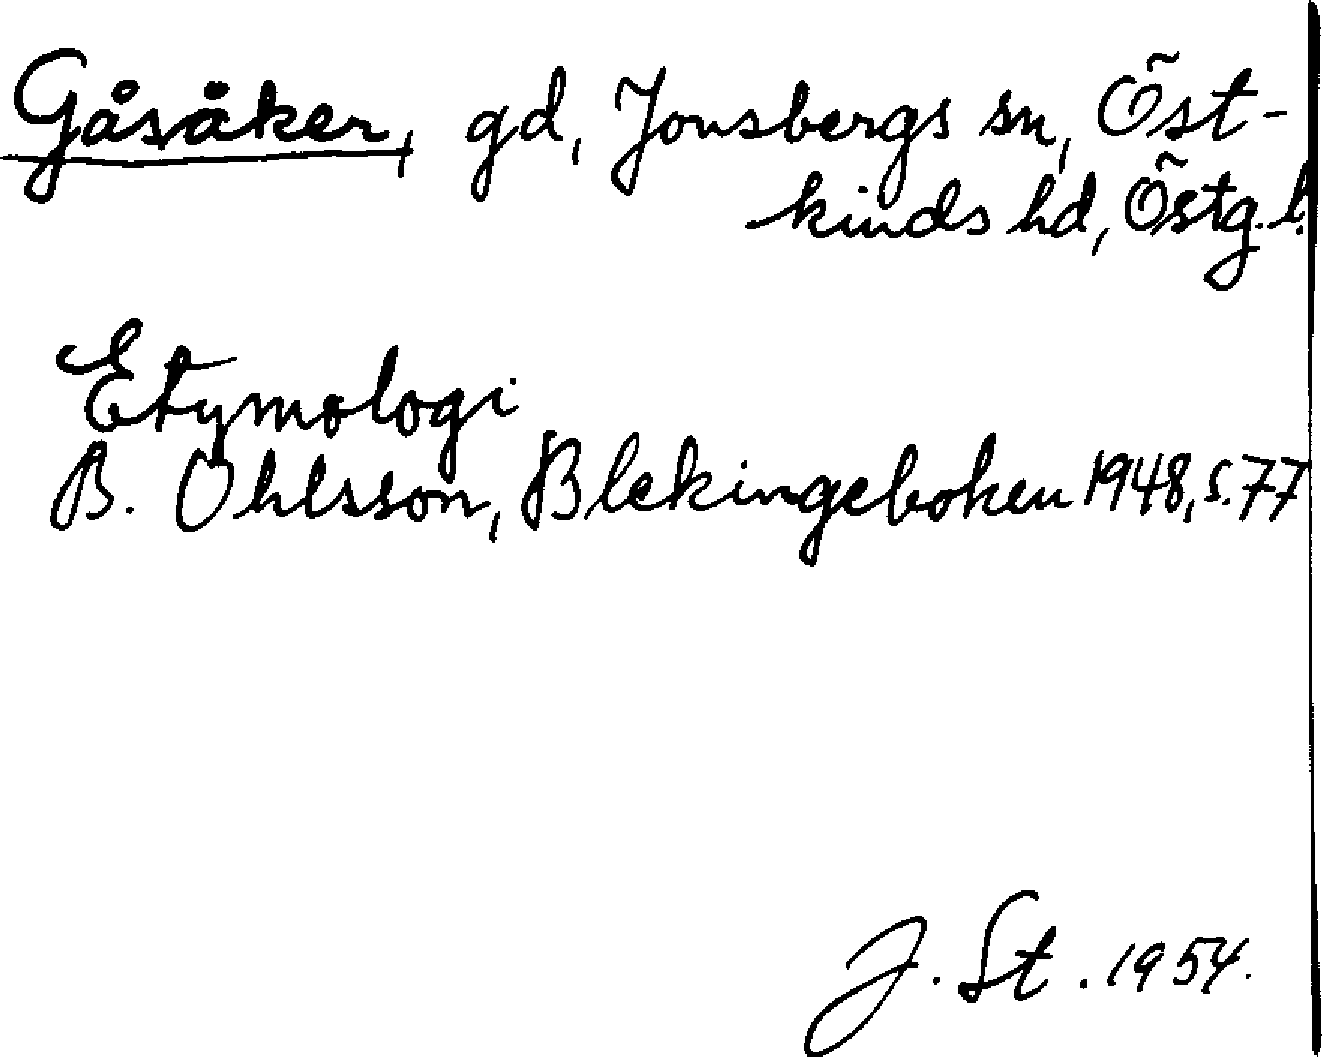 Gåsåker, gd, Jonsbergs sn, Öst-
kinds hd, Östg. l.
Etymologi
B. Ohlsson, Blekingeboken 1948, s. 77
J. St. 1954.